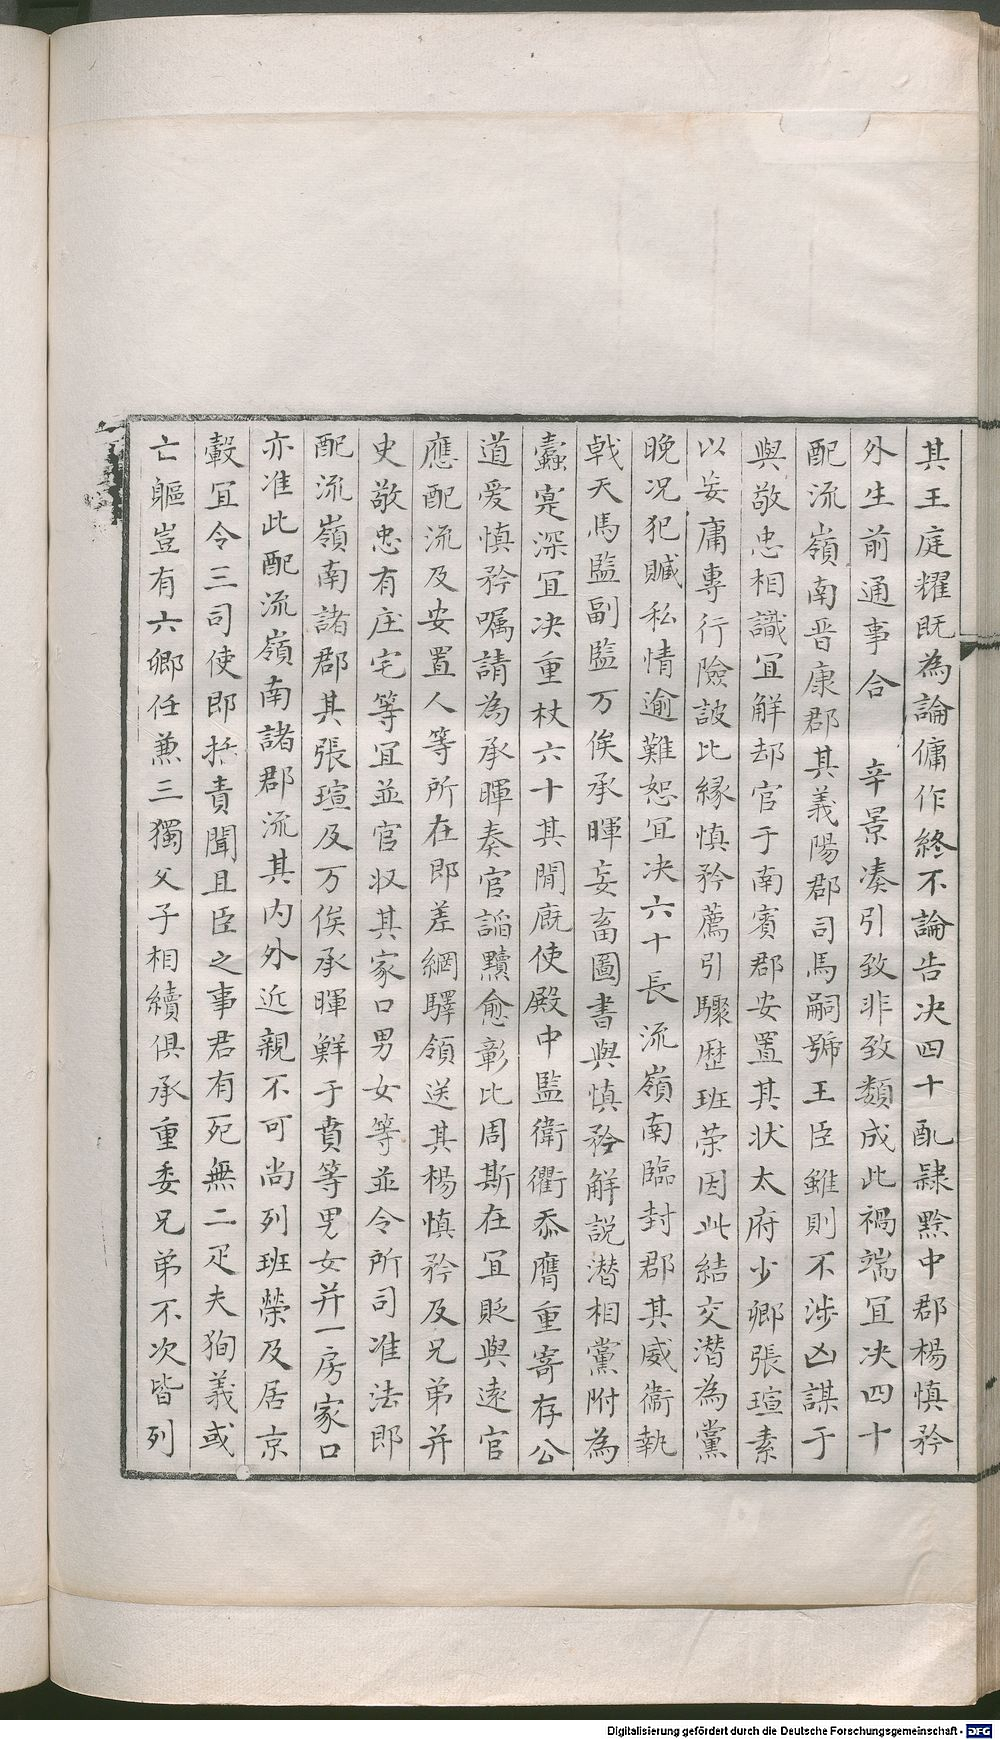 其王庭耀既為論傭作終不論告决四十配𨽻黔中郡楊慎矜
外生前通事合　辛景凑引致非致類成此禍端冝决四十
配流嶺南晋康郡其義陽郡司馬嗣虢王臣雖則不涉凶謀于
與敬忠相識冝解却官于南賓郡安置其状太府少卿張瑄素
以妄庸專行險詖比緣慎矜薦引驟歴班荣因此結交潜為黨
晚况犯贓私情逾難恕冝决六十長流嶺南臨封郡其威衞執
戟天馬監副監万俟承暉妄畜圖書與慎矜解説潜相黨附為
蠹寔深冝决重杖六十其閒廐使殿中監衞衢忝膺重寄存公
道爱慎矜嘱請為承暉奏官謟黷愈彰比周斯在冝貶與遠官
應配流及安置人等所在即差網驛領送其楊慎矜及兄弟并
史敬忠有庄宅等冝並官収其家口男女等並令所司准法郎
配流嶺南諸郡其張瑄及万俟承暉鮮于賁等男女并一房家口
亦准此配流嶺南諸郡流其内外近親不可尚列班榮及居京
轂冝令三司使即括責聞且臣之事君有死無二疋夫狥義或
亡軀豈有六卿任兼三獨父子相續俱承重委兄弟不次皆列
Digitalisierung gefördert durch die Deutsche Forschungsgemeinschaft - DFG